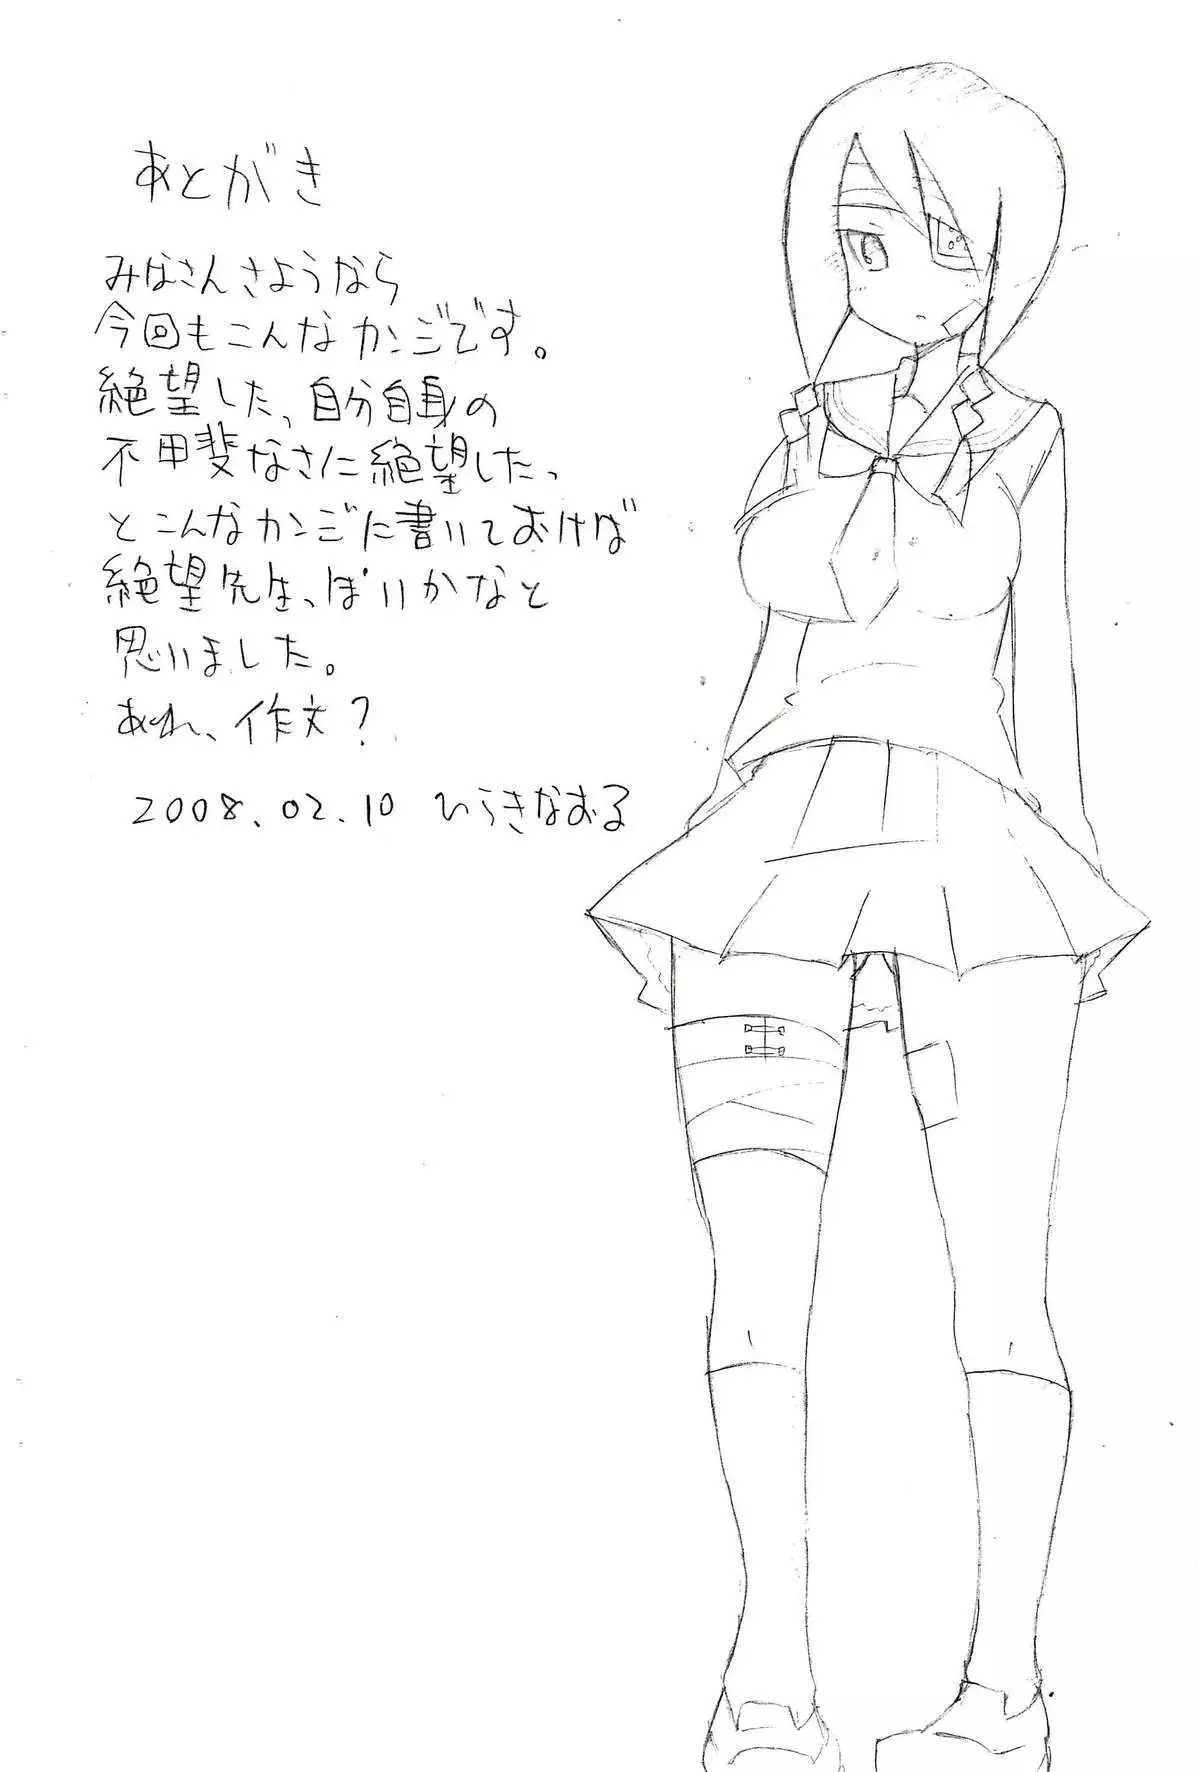 あとがき
みなさんさようなら
今回もこんなカンジです。
絶望した、自分自身の
不甲斐なさに絶望した、
とこんなカンジに書いておけば
絶望先生、ぽいかなと
思いました。
あれ、作文？
2008.02.10 ひらきなおる